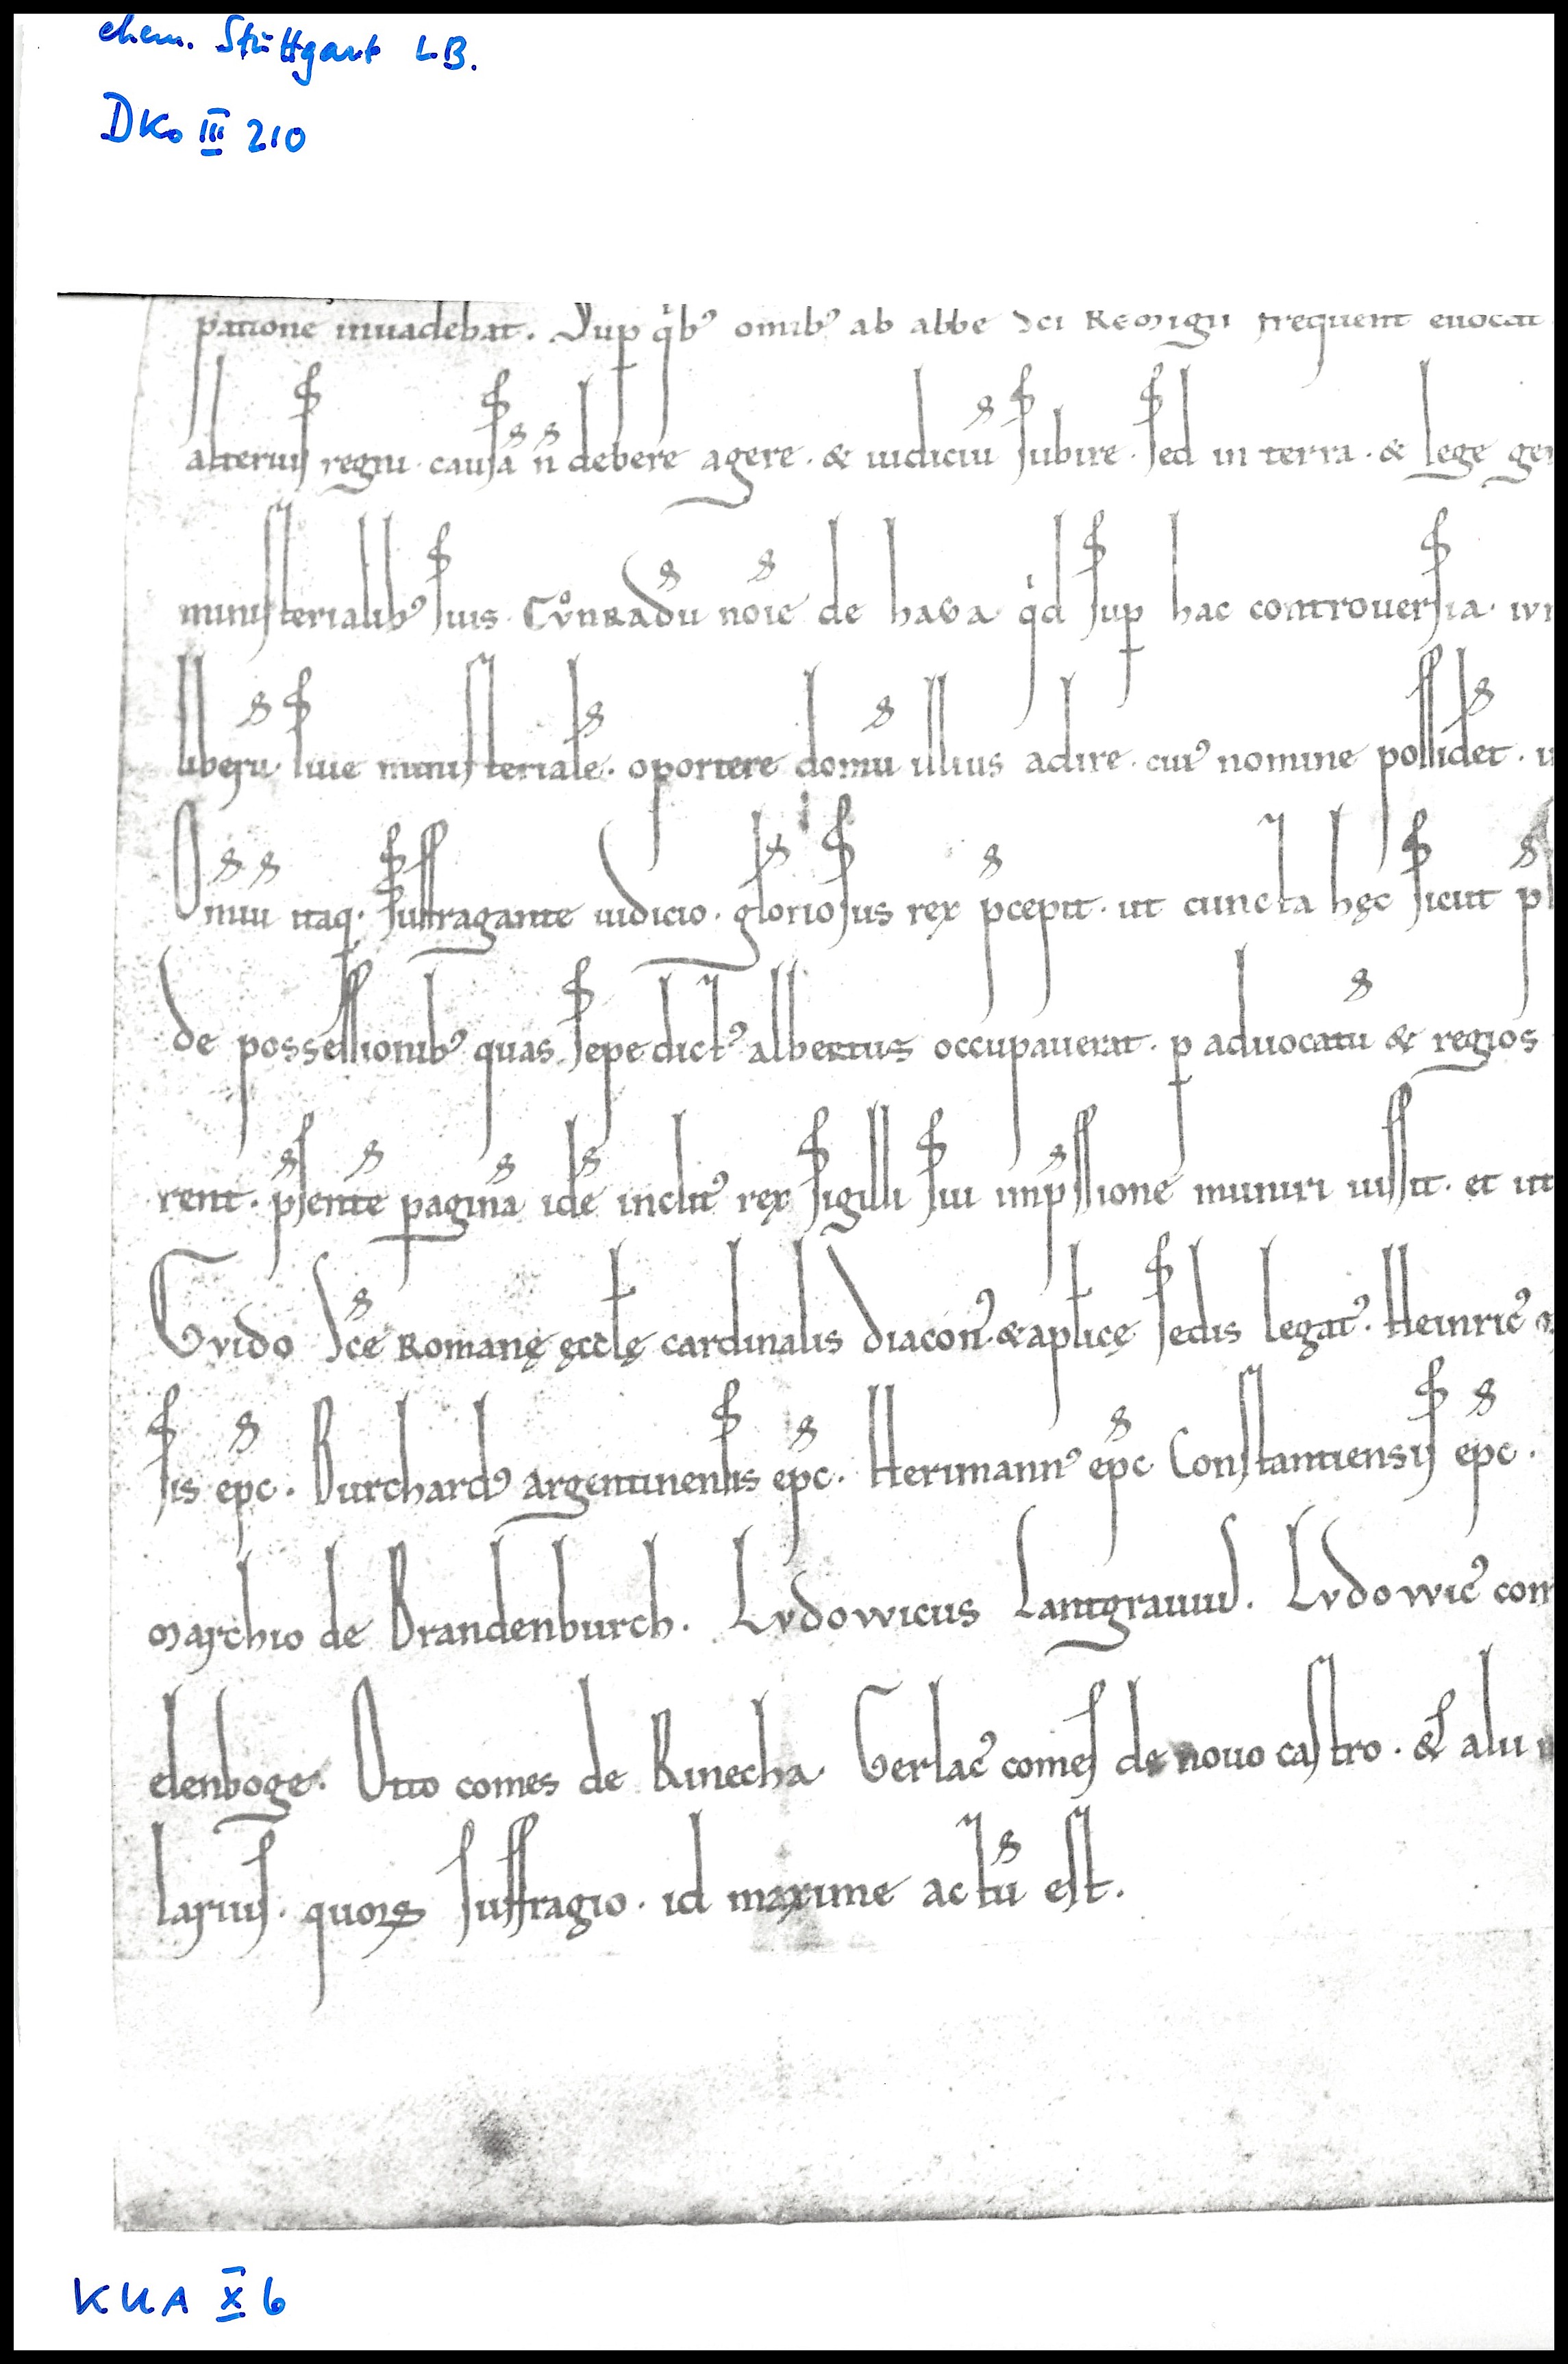 ehem. Stuttgart LB.
DKo III 210
patione inuadebat. Sup q̇bꝰ omībꝰ ab abbe sc̄i Remigii frequent̄ euocat
alterius regni. causā n̄ debere agere. & iudiciū subire. sed in terra. & lege gen
ministerialibꝰ suis. Cv̊nradū noīe de hava qd sup hac controuersia. iv
liberū. siue ministerialē. oportere domū illius adire. cuiꝰ nomine possidet.
Omīū itaq. suffragante iudicio. gloriosus rex p̄cepit. ut cuncta hęc sicut p
de possessionibꝰ quas sepe dictꝰ albertus occupauerat. ꝑ aduocatū & regios
rent. p̄sentē paginā idē inclitꝰ rex sigilli sui imp̄ssione muniri iussit. et ut
Gvido sc̄e Romanę ęccl̄ę cardinalis diaconꝰ. & apl̄icę sedis legatꝰ. Heinricꝰ
sis ep̄c. Burchardꝰ argentinensis ep̄c. Herimannꝰ ep̄c Constantiensis ep̄c.
marchio de Brandenburch. Lvdowicus Lantgrauius. Lvdowicꝰ com
elenboge. Otto comes de Rinecha. Gerlacꝰ comes de nouo castro. & alii
larius. quoꝝ suffragio. id maxime actū est.
KUA X 6